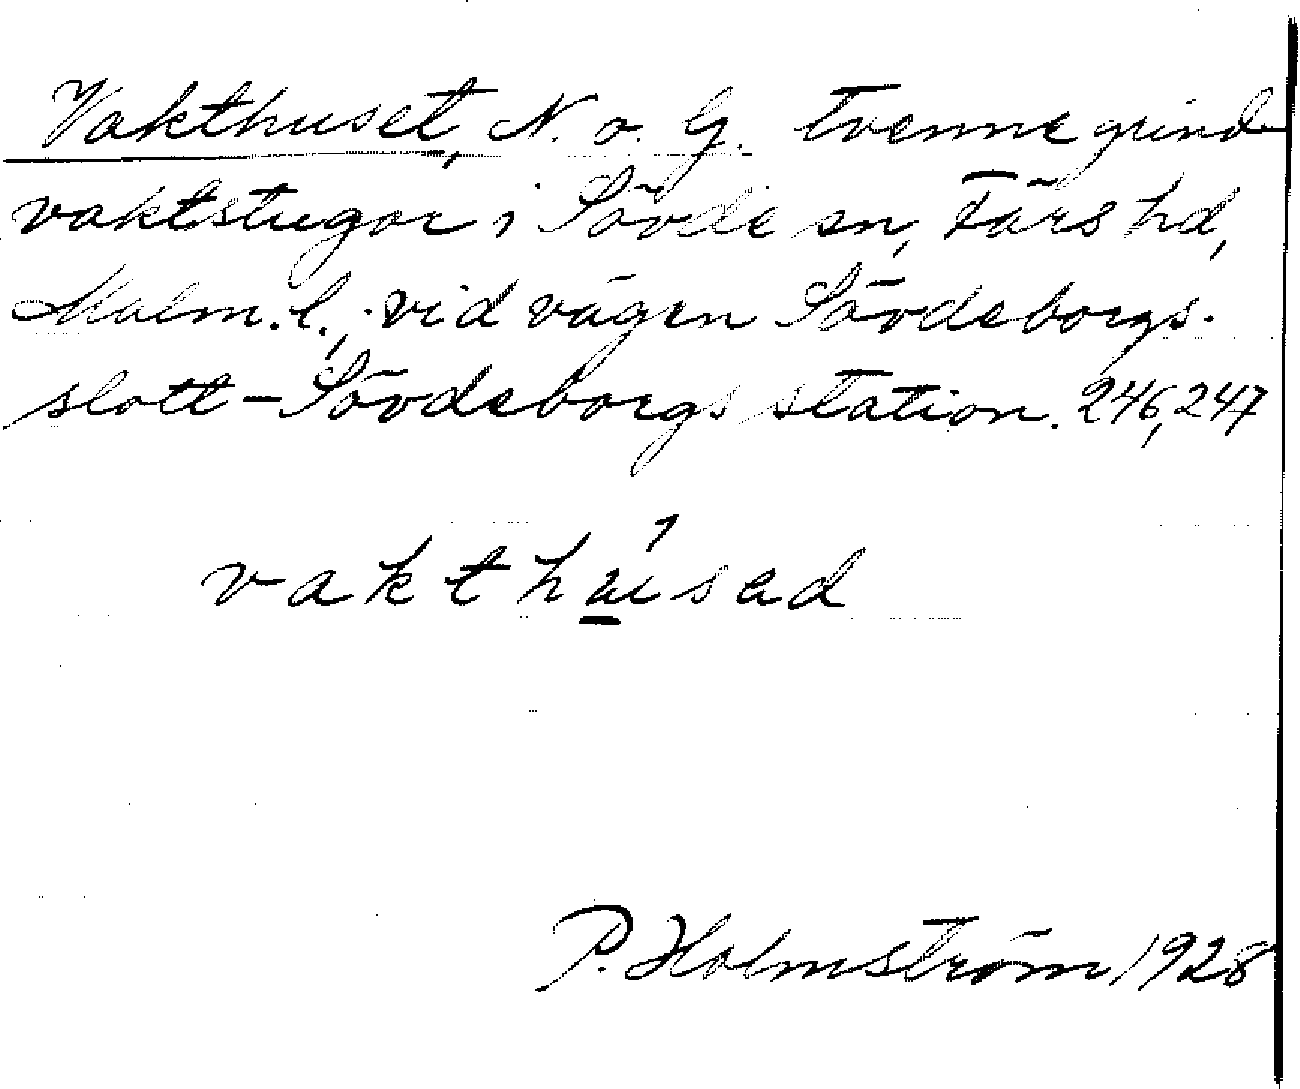 Vakthuset, N. o. G. tvenne grind
vaktstugor i Sövde sn, Färs hd,
Malm. l., vid vägen Sövdeborgs
slott - Sövdeborgs station. 246, 247
vakthúsad
P. Holmström 1928